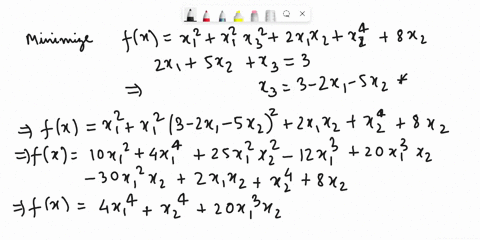 Minimize f(x) = x₁² + x₁² x₃² + 2x₁x₂ + x₂⁴ + 8x₂
2x₁ + 5x₂ + x₃ = 3
⇒ x₃ = 3-2x₁-5x₂ *
⇒ f(x) = x₁² + x₁² (3-2x₁-5x₂)² + 2x₁x₂ + x₂⁴ + 8x₂
⇒ f(x) = 10x₁² + 4x₁⁴ + 25x₁²x₂² - 12x₁³ + 20x₁³x₂
-30x₁²x₂ + 2x₁x₂ + x₂⁴ + 8x₂
⇒ f(x) = 4x₁⁴ + x₂⁴ + 20x₁³x₂